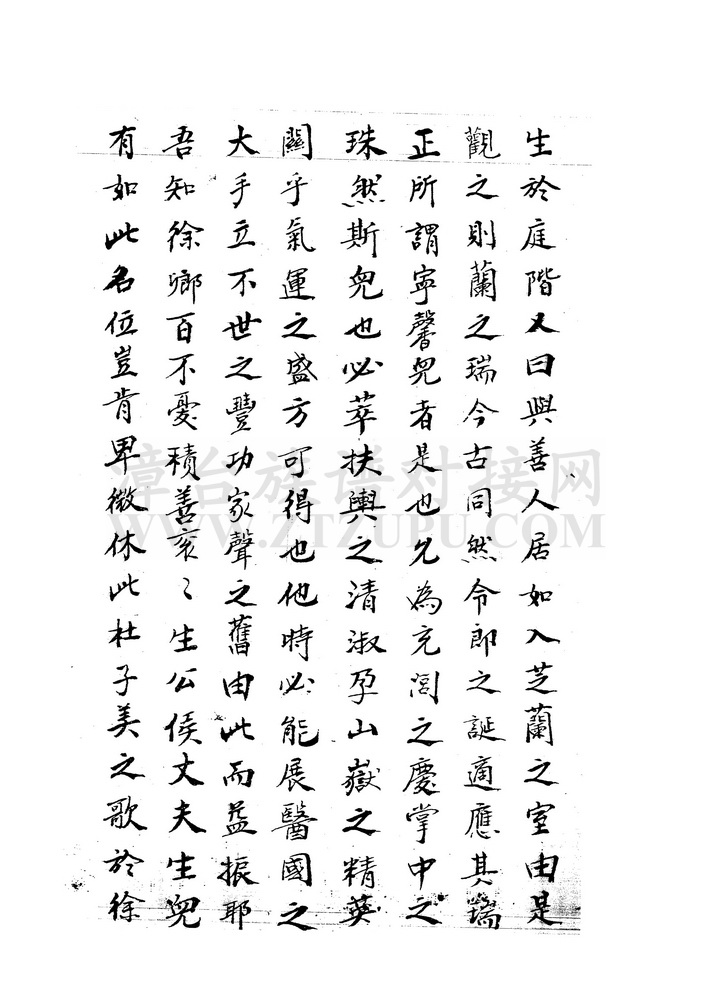 生於庭階又曰與善人居如入芝蘭之室由是
觀之則蘭之瑞今古同然令郎之誕適應其瑞
正所謂寧馨兒者是也允為充閭之慶掌中之
珠然斯兒也必萃扶輿之清淑孕山嶽之精英
關乎氣運之盛方可得也他時必能展醫國之
大手立不世之豐功家聲之舊由此而益振耶
吾知徐卿百不憂積善袞〻生公侯丈夫生兒
有如此名位豈肯卑微休此杜子美之歌於徐
章台族谱对接网
WWW.ZTZUPU.COM